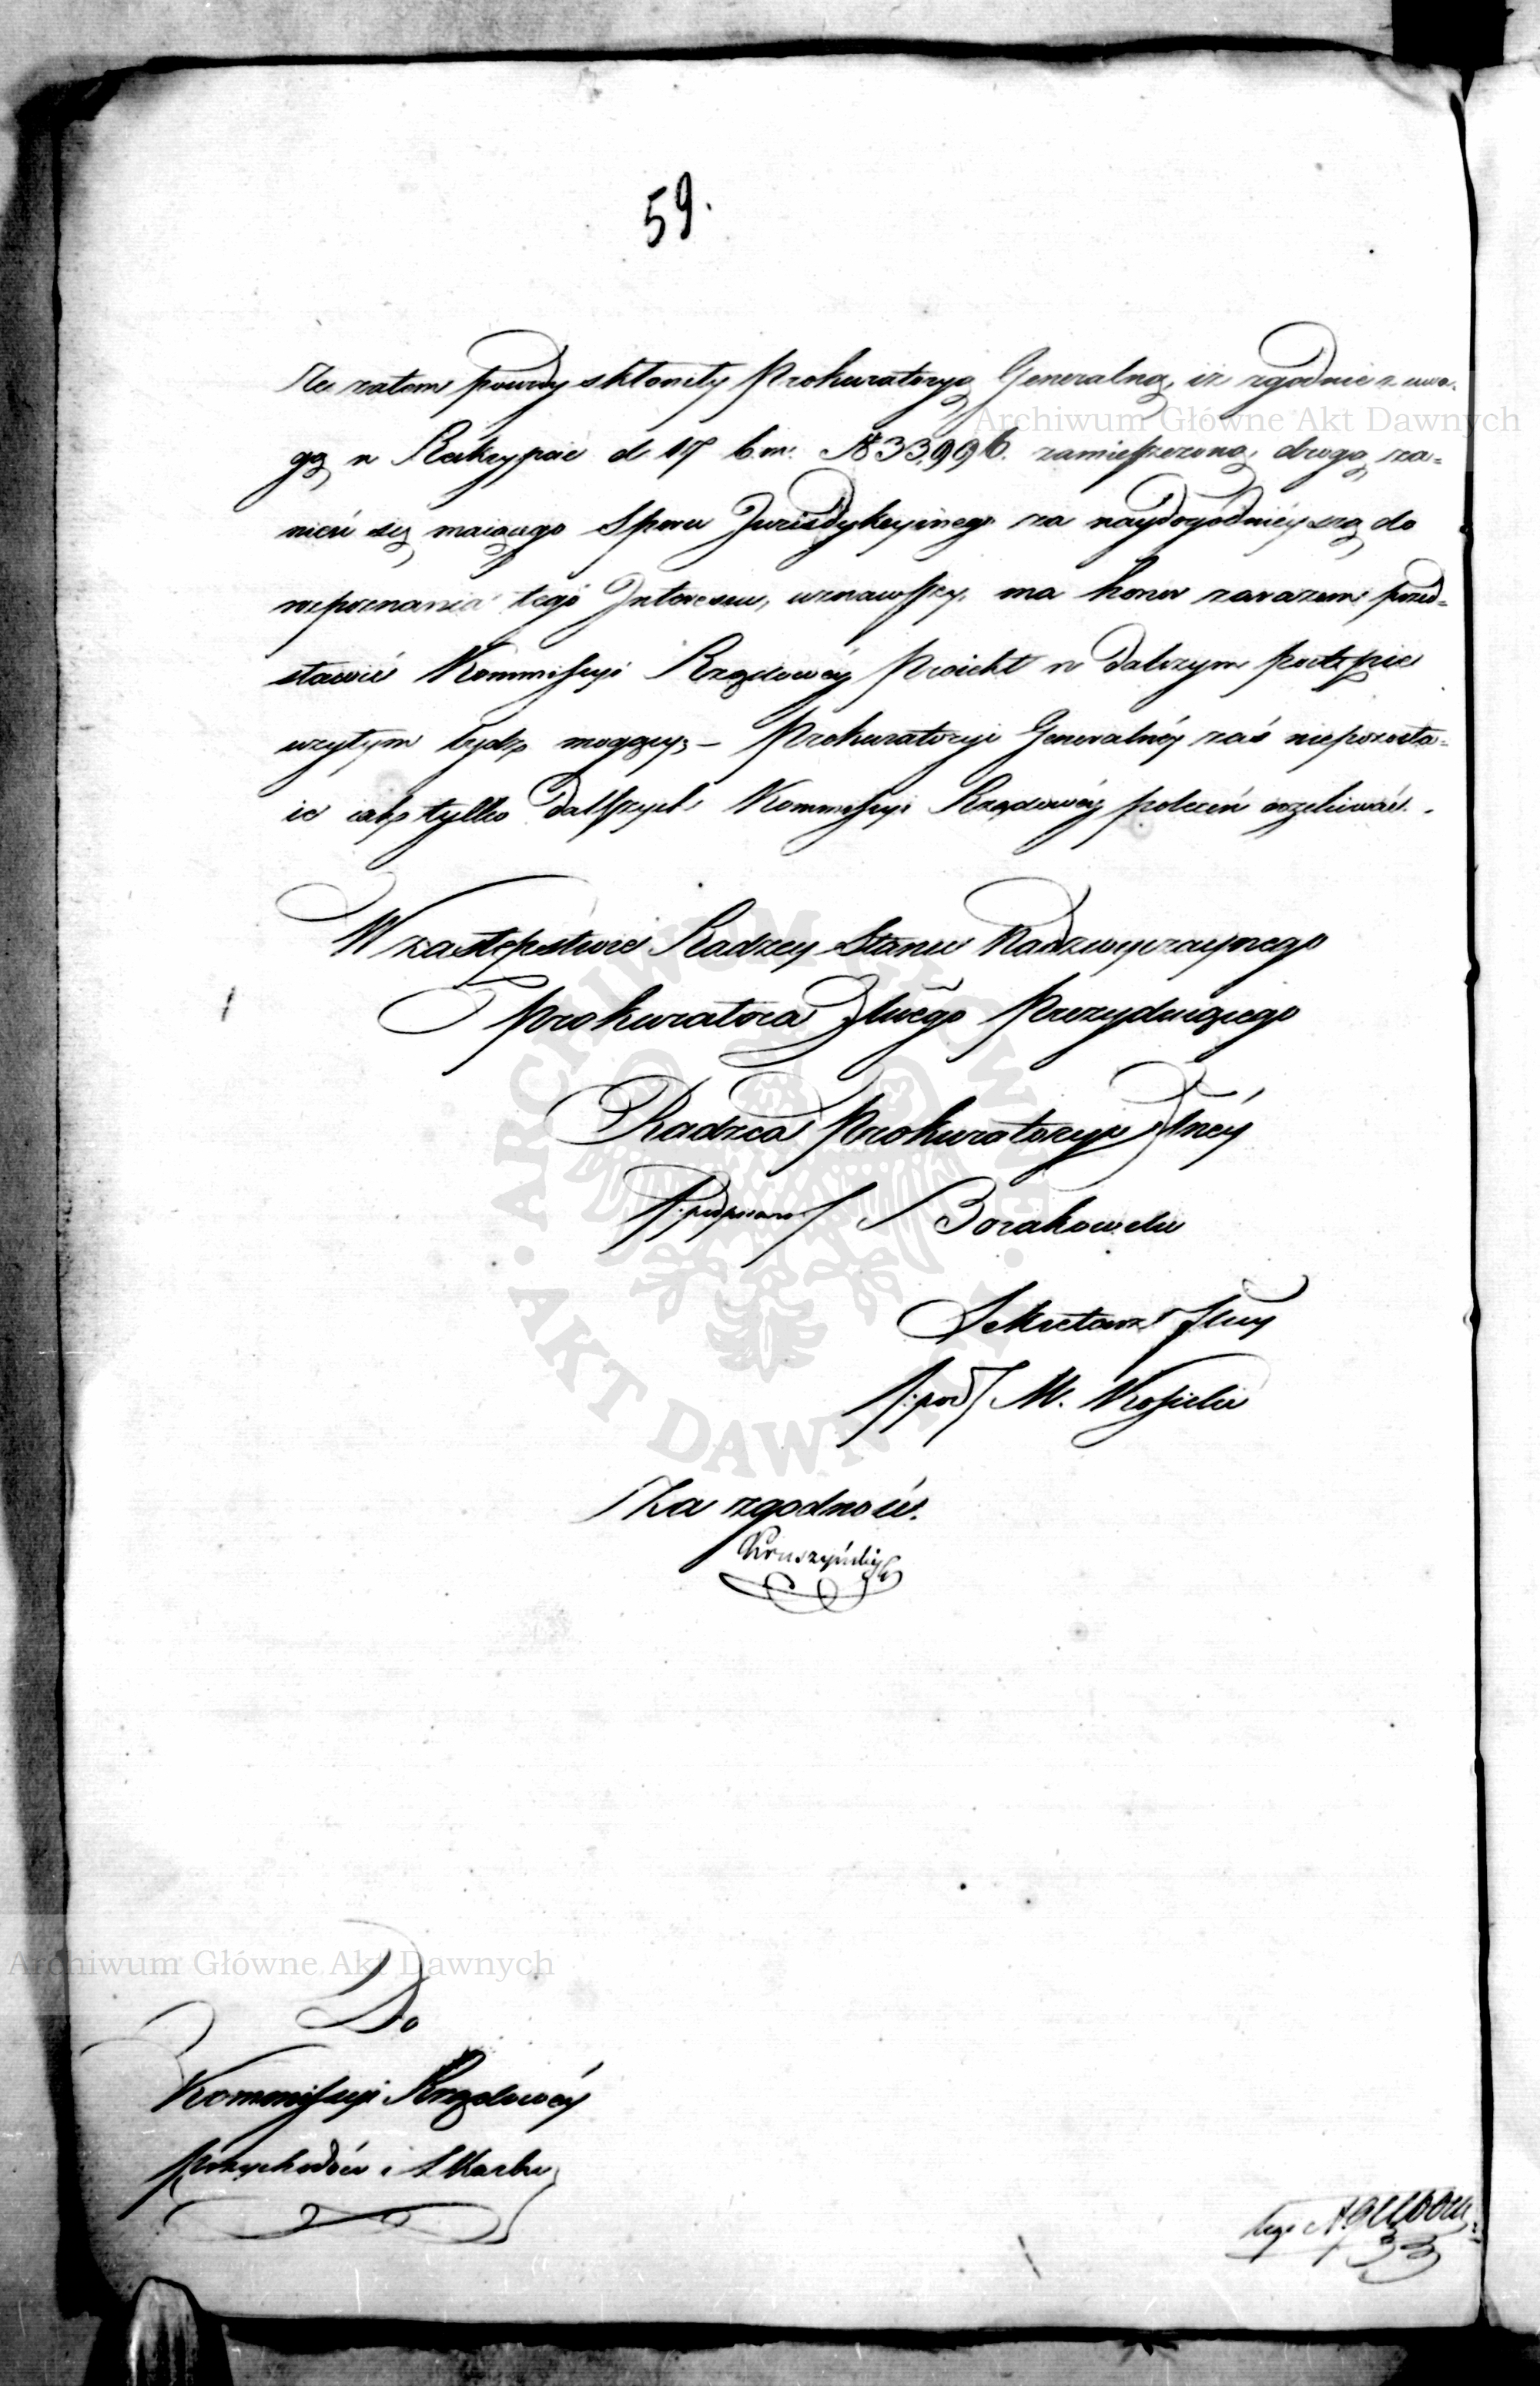 59.
Te zatem powody skłoniły Prokuratoryą Generalną, iż zgodnie z uwa-
gą w Reskrypcie d. 17 b. m. N 33,996. zamieszczoną, drogą, wza-
nieść się maiącego Sporu Jurisdykcyinego za naydogodnieyszą do
rozpoznania tego Interessu, uznawszy, ma honor zarazem przed-
stawić Kommissyi Rządowéy Proiekt w dalszym postępie
użytym bydź mogący; – Prokuratoryi Generalnéy zaś niepozosta-
ie iak tylko dalszych Kommissyi Rządowéy poleceń oczekiwać.
W zastępstwie Radzcy Stanu Nadzwyczaynego
Prokuratora Glnego Prezyduiącego
Radzca Prokuratoryi Glnéy
/:podpisano/ Borakowski
Sekretarz Jlny
/:pod/ M.
Za zgodność.
Kruszyński
Do
Kommissyi Rządowéy
Przychodów i Skarbu
Archiwum Główne Akt Dawnych
Archiwum Główne Akt Dawnych
ARCHIWUM GŁÓWNE AKT DAWNYCH